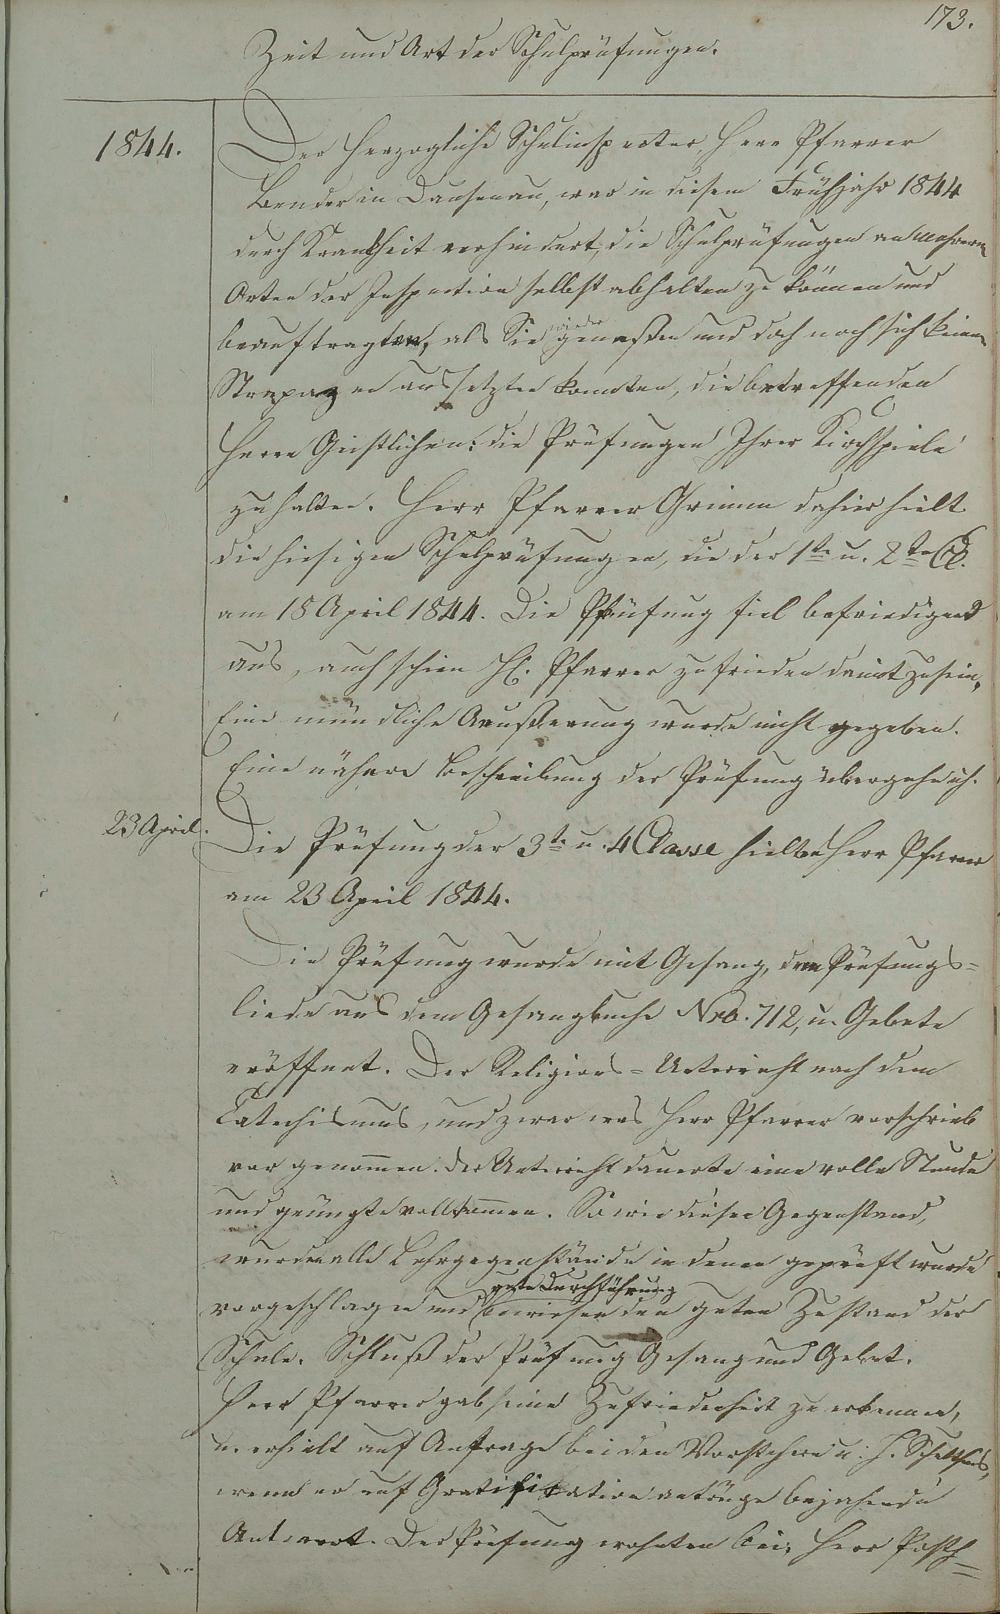 173.
Zeit und Art der Schulprüfungen.
1844.
Der Herzogliche Schulinspector, Herr Pfarrer
Bender in Dausenau, war in diesem Frühjahr 1844
durch Krankheit verhindert, die Schulprüfungen an mehreren
Orten der Inspection selbst abhalten zu können und
beauftragten, als Sie wieder genaßen und doch noch sich keinen
Strapazen aussetzten konnten, die betreffenden
Herrn Geistlichen: die Prüfungen Ihrer Kirchspiele
zu halten. Herr Pfarrer Grimm dahier hielt
die hiesigen Schulprüfungen, die der 1te u. 2te Cl.
am 18 April 1844. Die Prüfung fiel befriedigend
aus, auch schien H. Pfarrer zufrieden damit zu sein,
Eine mündliche Aeußerung wurde nicht gegeben.
Eine nähere Beschreibung der Prüfung übergehe ich.
23 April.
Die Prüfung der 3te u. 4 Classe hielte Herr Pfarrer
am 23 April 1844.
Die Prüfung wurde mit Gesang, dem Prüfungs=
liede aus dem Gesangbuche Nro. 712, u. Gebete
eröffnet. Der Religions=Unterricht nach dem
Catechismus, und zwar was Herr Pfarrer vorschrieb
vor genommen. Der Unterricht dauerte eine volle Stunde
und genügte vollkommen. So wie dieser Gegenstand,
wurden alle Lehrgegenstände in denen geprüft wurde
gute Durchführung
vorgeschlagen und bewiesen den guten Zustand der
Schule. Schluß der Prüfung Gesang und Gebet.
Herr Pfarrer gab seine Zufriedenheit zu erkennen,
u. erhielt auf Anfrage bei den Vorstehern u. H. Schultheis,
wenn er auf Gratifikation antrüge bejahende
Antwort. Der Prüfung wohnten bei, Herr